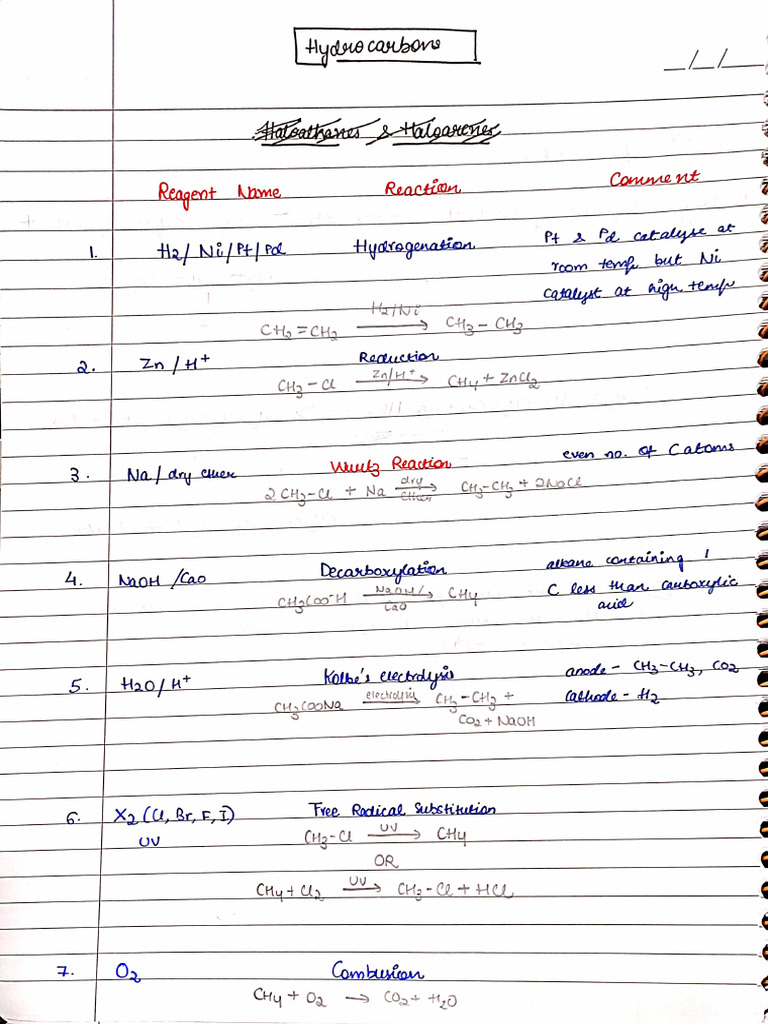 Hydrocarbons
_/_/_
Haloalkanes & Haloarenes
Reagent Name Reaction Comment
1. H2/ Ni/Pt/Pd Hydrogenation Pt & Pd catalyse at
room temp but Ni
catalyst at high temp
CH2=CH2 H2/Ni → CH3-CH3
2. Zn/H+ Reduction
CH3-Cl Zn/H+ → CH4 + ZnCl2
3. Na/dry ether Wurtz Reaction even no. of C atoms
2CH3-Cl + Na dry ether → CH3-CH3 + 2NaCl
4. NaOH/CaO Decarboxylation alkane containing 1
C less than carboxylic
acid
CH3COO-H NaOH/CaO → CH4
5. H2O/H+ Kolbe's electrolysis anode - CH3-CH3, CO2
cathode - H2
CH3COONa electrolysis → CH3-CH3 +
CO2 + NaOH
6. X2 (Cl, Br, F, I) Free Radical Substitution
UV CH3-Cl UV → CH4
OR
CH4 + Cl2 UV → CH3-Cl + HCl
7. O2 Combusion
CH4 + O2 → CO2 + H2O